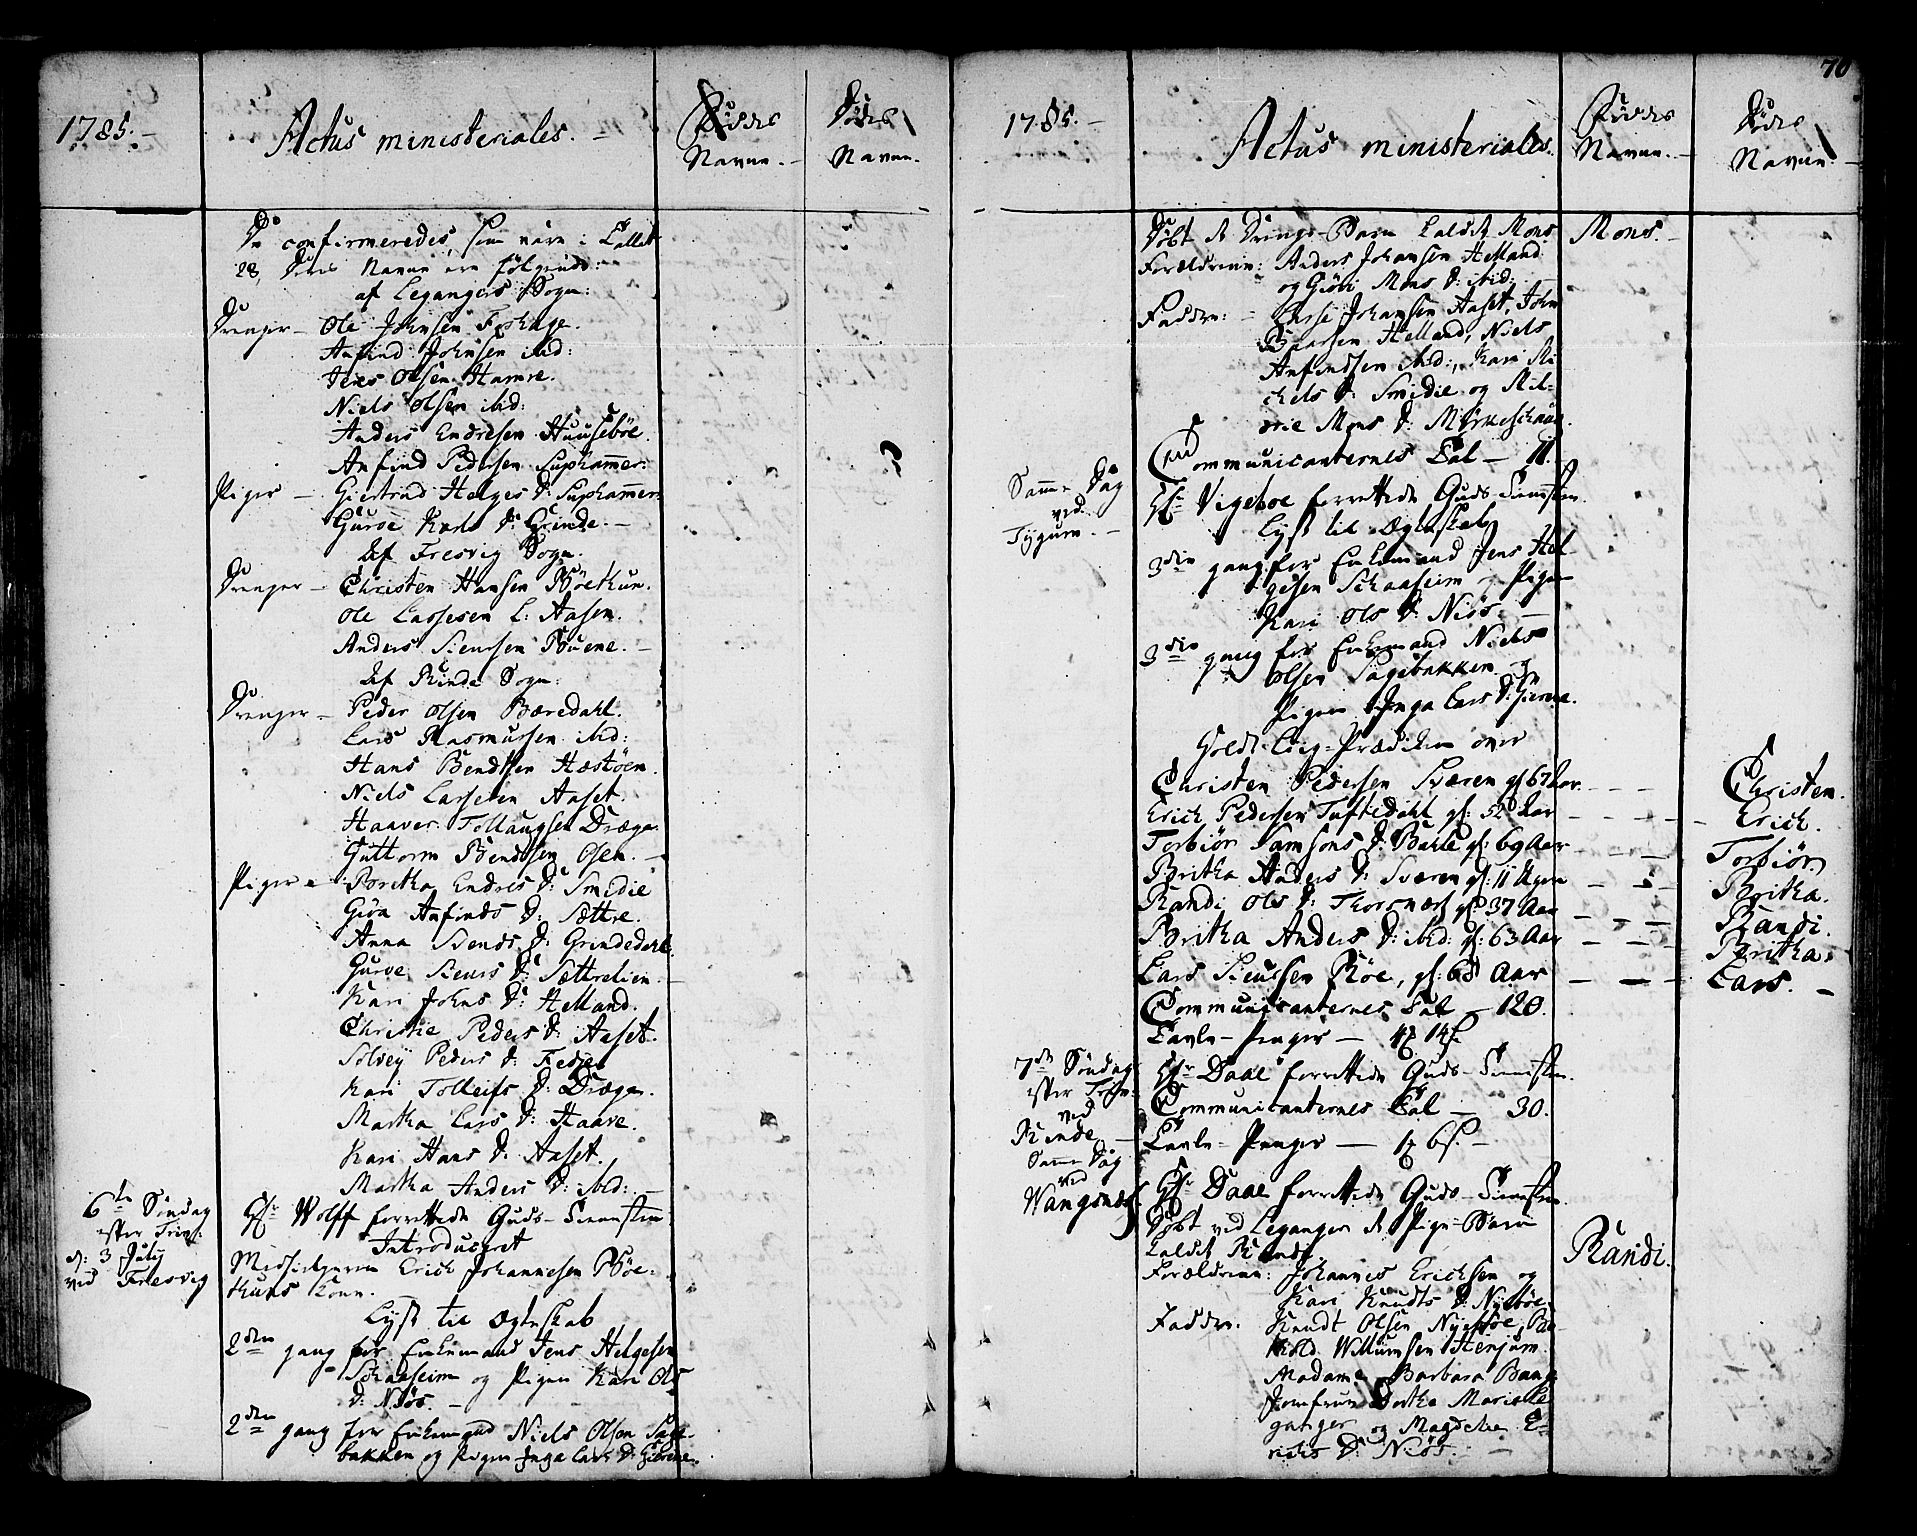 1785. -
Actus ministeriales. -
Fødde
Navne. -
Døde
Navne. -
De confirmerede, som vare i Tallet
28, Deres Navne ere følgende:
af Leganger Sogn:
Drenger - Ole Johnsen
Anfind Johnsen ibid:
Jens Olsen Hamre.
Niels Olsen ibid:
Anders Endresen Huusebøe.
Anfind Pedersen Suphammer:
Piger - Giertrud Helges D: Suphammer:
Gurve Karls D: Grinde. -
Af Fresvig Sogn.
Drenger - Christen Hansen Bøetkun.
Ole Lassesen L: Aasen.
Anders Siursen Tuene. -
Af Rinde Sogn:
Drenger - Peder Olsen Bæredahl.
Lars Rasmussen ibid:
Hans Bendtsen Hæstøen.
Niels Larsesen Aaset.
Haaver Tollaugsen Dræge.
Guttorm Bendtsen Osen. -
Piger - Britha Endres D: Smedie
Giøa Anfinds D: Sættre.
Anna Svends D: Grindedahl.
Gurve Siurs D: Sættrelien. -
Kari Johns D: Helland.
Christie Peders D: Aaset.
Solvey Peders D: Fedje
Kari Tolleifs D: Dræge.
Martha Lars D: Haave.
Kari Hans D: Aaset.
Martha Anders D: ibid: -
6te Søndag
efter Trin:
d: 3 July
ved Fresvig
Hr Wolff forrettede Guds-Tienesten
Introduceret
Erich Johannesen Bøe-
tkuns Kone.
Lyst til Ægteskab
2den gang for Enkemand Jens Helgesen
Schaaseim og Pigen Kari Ols
D: Niøs. -
2den gang for Enkemand Niels Olsen Sage-
bakken og Pigen Inga Lars D: Gierene.
70
1785. -
Actus ministeriales.
Fødde
Navne. -
Døde
Navne. -
Døbt et Drenge-Barn kaldet Mons Mons. -
Forældrene: Anders Johansen Helland
og Giøri Mons D: ibid:
Faddere: - Lasse Johansen Aaset, John
Helland, Niels
Anfindsen ibid:, Kari Mi-
chels D: Smedie og
Mons D: Mørkeschaug.
Communicanternes Tal - 11.
Samme Dag
ved
Tygum. -
Hr Vigeboe forrettede Guds-Tienesten.
Lyst til Ægteskab
3die gang for Enkemand Jens Hel-
gesen Schaaseim og Pigen
Kari Ols D: Niøs. -
3die gang for Enkemand Niels
Olsen Sagebakken og
Pigen Inga Lars D: Gierene.
Holdt Liig-Prædiken over
Christen Pedersen Sværen gl: 67 Aar. - - - Christen.
Erich Pedersen Tuftedahl gl: 52 Aar - - - Erich.
Torbiør Samsons D: Bahle gl: 69 Aar - - - Torbiør.
Britha Anders D: Sværen gl: 11 Ugen - - - Britha.
Randi Ols D: Thorsnæs gl: 37 Aar - - - Randi.
Britha Anders D: ibid: gl: 63 Aar - - - Britha.
Lars Siursen Røe, gl: 68 Aar - - - Lars. -
Communicanternes Tal - 120.
Tavle-Penger -
7de Søndag
efter Trin:
ved
Rinde -
Hr Daae forrettede Guds-Tienesten.
Communicanternes Tal - 30.
Tavle-Penger -
Samme Dag
ved
Wangsnæs.
Hr Daae forrettede Guds-Tienesten.
Døbt ved Leganger et Pige-Barn
kaldet Randi. Randi.
Forældrene: Johannes Erichsen og
Kari Knudts D: Nybøe.
Faddere. Knudt Olsen Nybøe,
Willumsen Henjum.
Madame Barbara Bang
Jomfrue Dorthe Marie Le-
ganger og Magdelie E-
richs D: Niøs. -